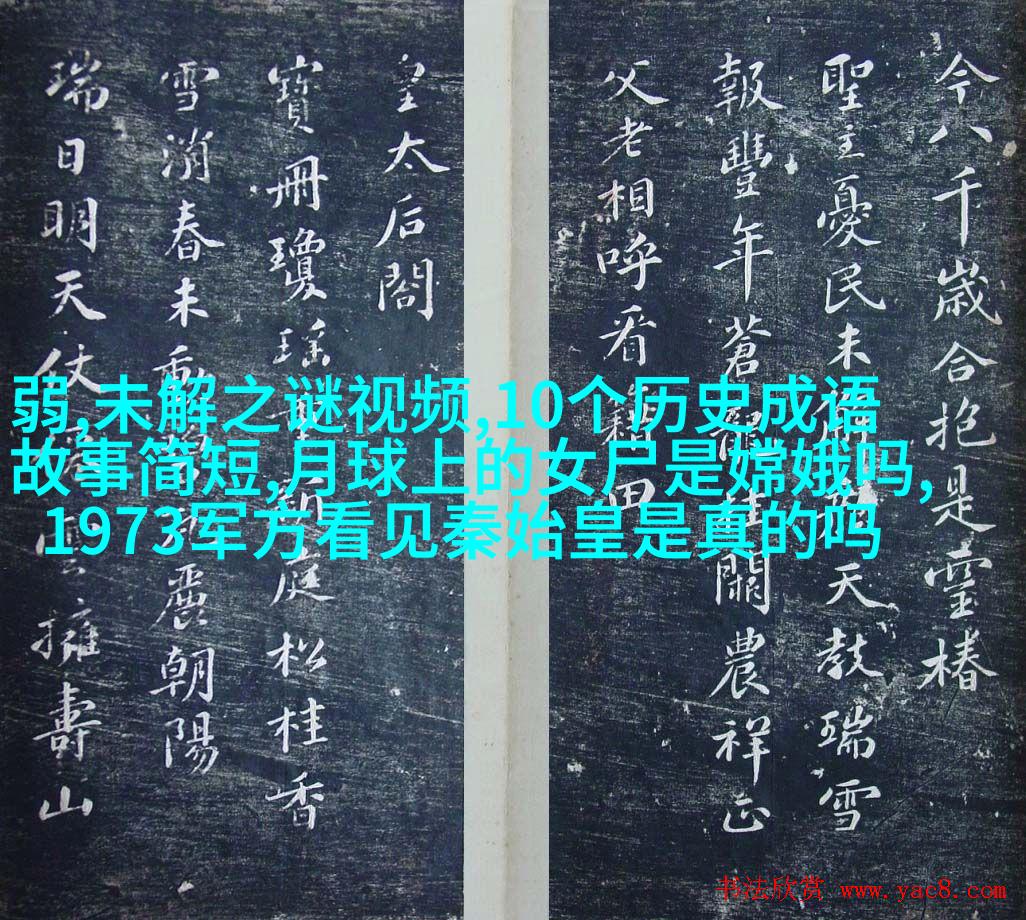 今八千歳合抱是靈椿
聖主憂民未解顏天教瑞雪
報豐年蒼龍挂闕農祥正
父老相呼看耤田
皇太后閣
寶冊瓊瑤重新庭松桂香
雪消春未動碧瓦麗朝陽
瑞日明天仗仙雲擁壽山
弱,未解之谜视频,10个历史成语
故事简短,月球上的女尸是嫦娥吗,
1973军方看见秦始皇是真的吗
书法欣赏 www.yac8.com